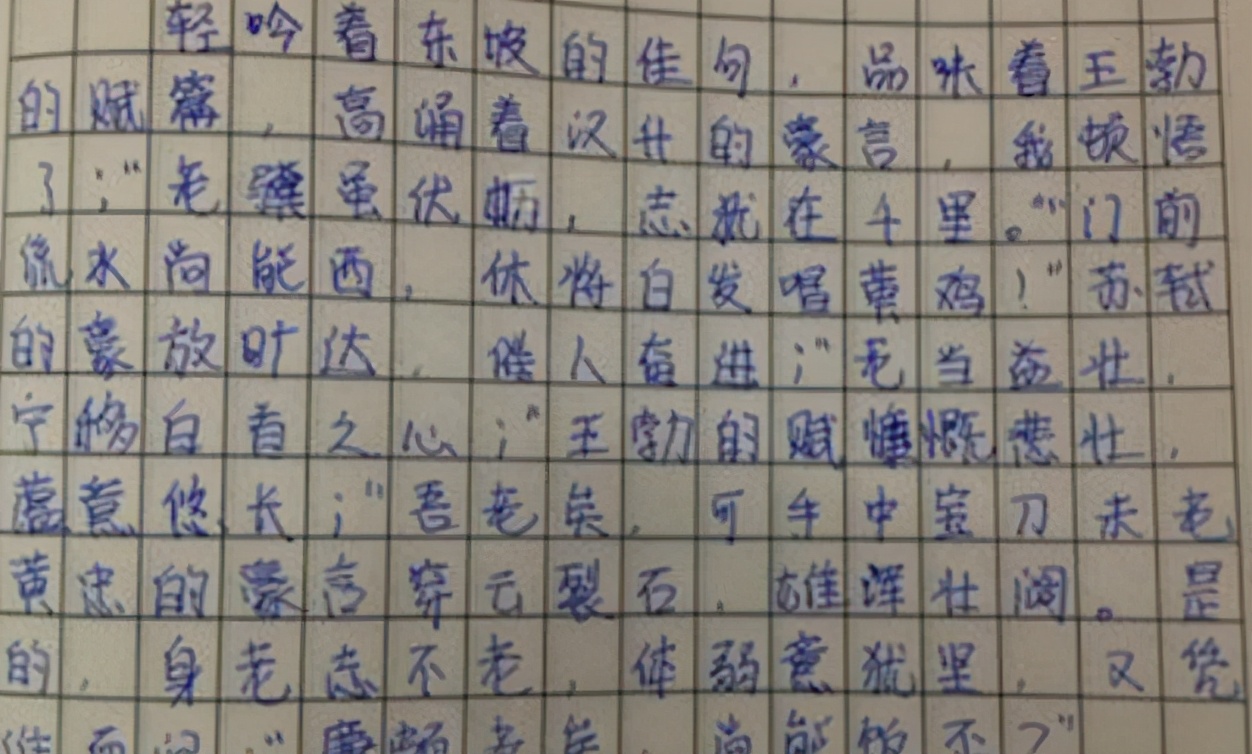 轻吟着东坡的佳句,品味着王勃
的赋篇,高涌着汉升的豪言,我顿悟
了;"老骥虽伏枥,志犹在千里。""门前
流水尚能西,休将白发唱黄鸡!"苏轼
的豪放旷达,催人奋进;"老当益壮,
宁移白首之心;"王勃的赋慷慨悲壮,
蕴意悠长;"吾老矣,可手中宝刀未老
黄忠的豪言穿云裂石,雄浑壮阔。是
的,身老志不老,体弱意犹坚,又凭
谁而问:"廉颇老矣,尚能饭不?"